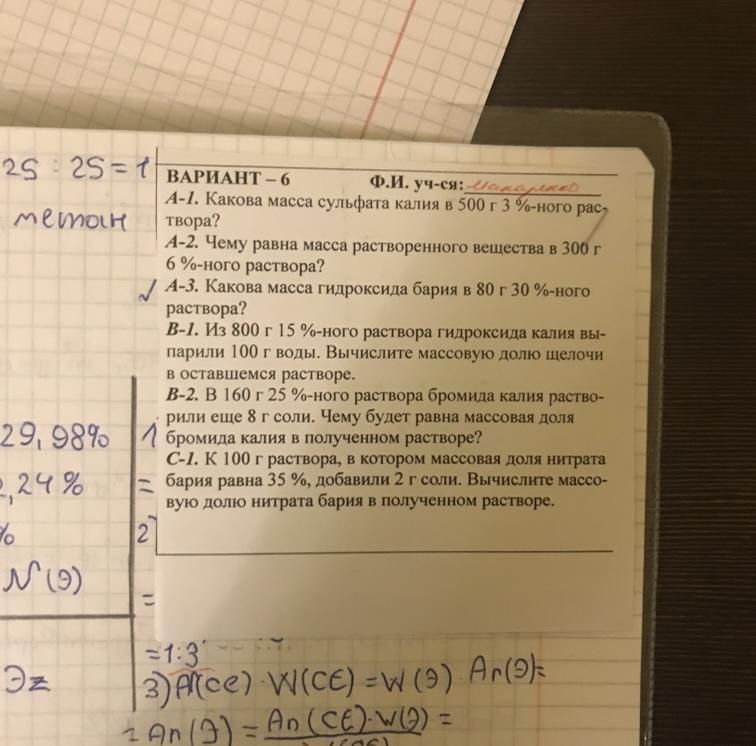 25 : 25 = 1
метан
ВАРИАНТ – 6 Ф.И. уч-ся: Макаренко
А-1. Какова масса сульфата калия в 500 г 3 %-ного рас-
твора?
А-2. Чему равна масса растворенного вещества в 300 г
6 %-ного раствора?
А-3. Какова масса гидроксида бария в 80 г 30 %-ного
раствора?
В-1. Из 800 г 15 %-ного раствора гидроксида калия вы-
парили 100 г воды. Вычислите массовую долю щелочи
в оставшемся растворе.
В-2. В 160 г 25 %-ного раствора бромида калия раство-
рили еще 8 г соли. Чему будет равна массовая доля
бромида калия в полученном растворе?
С-1. К 100 г раствора, в котором массовая доля нитрата
бария равна 35 %, добавили 2 г соли. Вычислите массо-
вую долю нитрата бария в полученном растворе.
29,98% 1
,24% =
% 2
N(Э)
=
=1:3
Эz
3) Ar(Cl) · W(Cl) = W(Э) · Ar(Э)=
= Ar(Э) = Ar(Cl)·W(Э) =